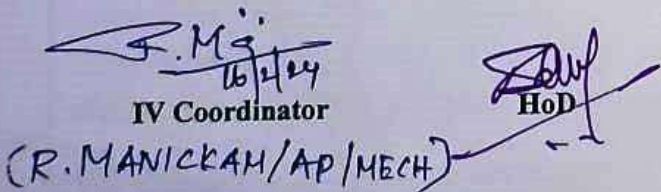 R.M
16/2/24
IV Coordinator HoD
(R. MANICKAM/AP/MECH)